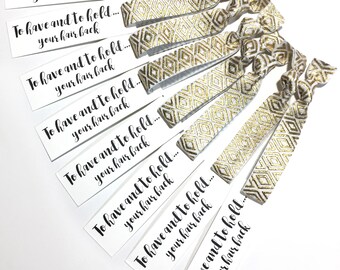 To have and to hold...
your hair back
To have and to hold...
your hair back
To have and to hold...
your hair back
To have and to hold...
your hair back
To have and to hold...
your hair back
To have and to hold...
your hair back
To have and to hold...
your hair back